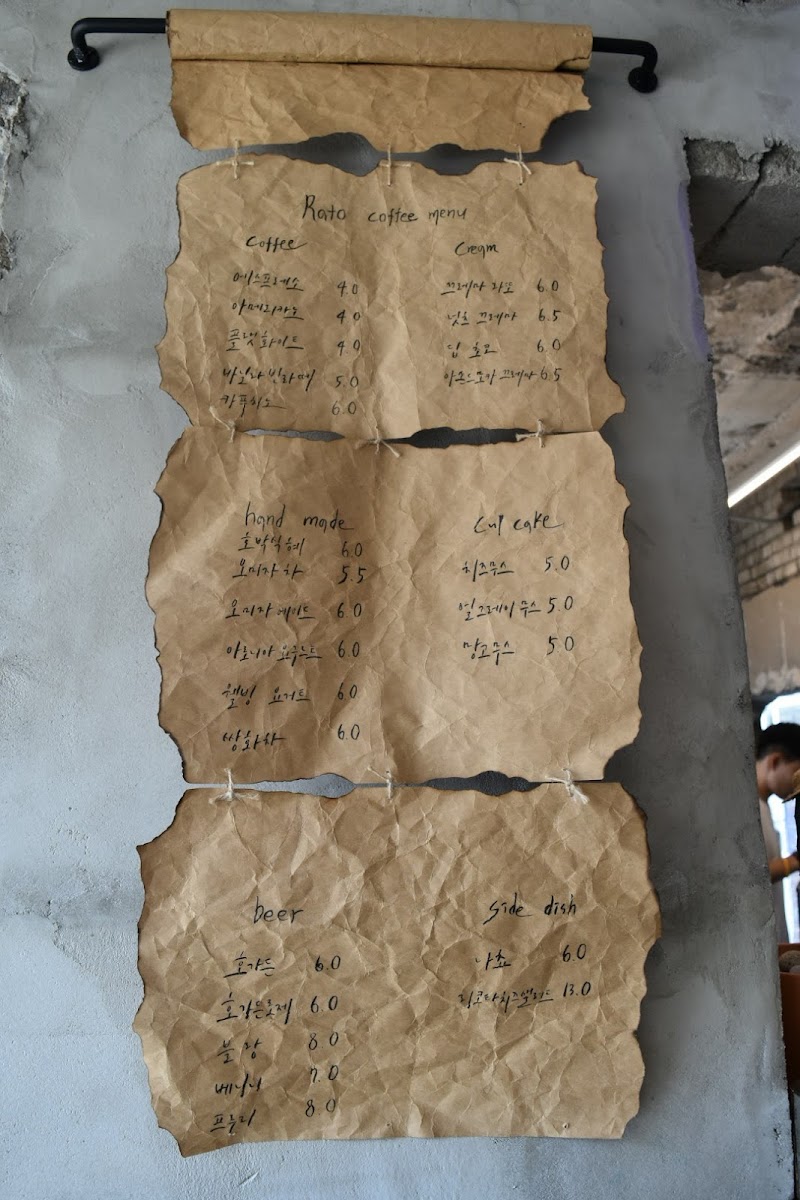 Rato coffee menu
Coffee
에스프레소 4.0
아메리카노 4.0
플랫화이트 4.0
바닐라빈라떼 5.0
카푸치노 6.0
Cream
끄레마 라떼 6.0
넛츠 끄레마 6.5
딥 초코 6.0
아몬드모카 끄레마 6.5
hand made
호박식혜 6.0
오미자차 5.5
오미자 에이드 6.0
아로니아 요구르트 6.0
웰빙 요거트 6.0
쌍화차 6.0
Cup cake
치즈무스 5.0
얼그레이 무스 5.0
망고무스 5.0
beer
호가든 6.0
호가든로제 6.0
블랑 8.0
베니니 7.0
프루리 8.0
side dish
나쵸 6.0
리코타치즈샐러드 13.0